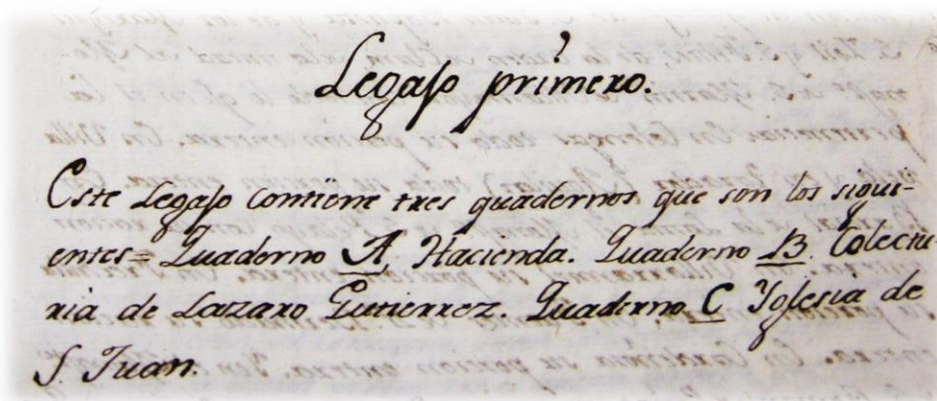 Legajo primero.
Este Legajo contiene tres quadernos que son los sigui-
entes= Quaderno A Hacienda. Quaderno B. Colectu-
ria de Lazaro Gutierrez. Quaderno C Yglesia de
S. Juan.